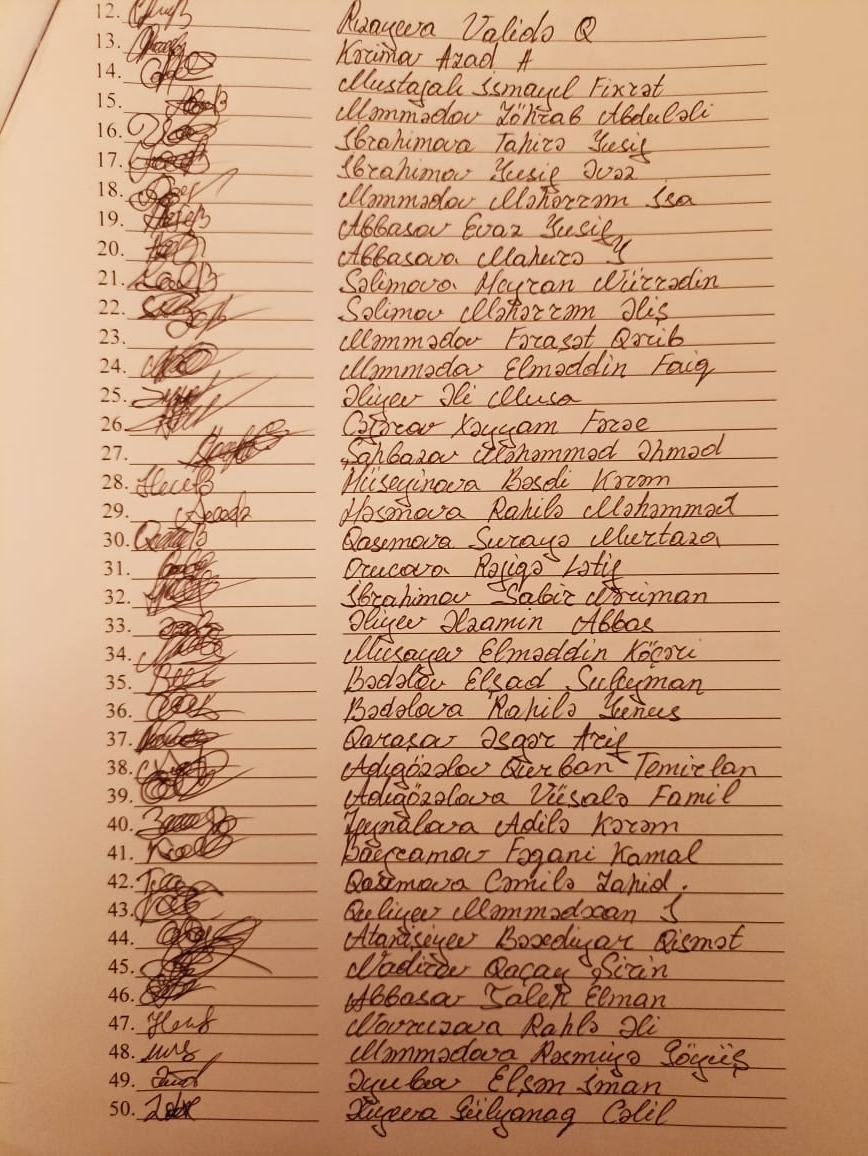 12. Rzayeva Validə Q
13. Kərimov Azad A
14. Mustafalı İsmayıl Fikrət
15. Məmmədov Zöhrab Abduləli
16. İbrahimova Tahirə Yusif
17. İbrahimov Yusif Əvəz
18. Məmmədov Məhərrəm İsa
19. Abbasov Evaz Yusif
20. Abbasova Mahirə Y
21. Səlimova Heyran Nürrədin
22. Səlimov Məhərrəm Əliş
23. Məmmədov Fəraşət Qərib
24. Məmmədov Elməddin Faiq
25. Əliyev Əli Musa
26. Cəfərov Xəyyam
27. Şahbazov Məhəmməd Əhməd
28. Hüseyinova Bəsdi Kərəm
29. Həsənova Rahilə Məhəmməd
30. Qasımova Surayə Murtaza
31. Orucova Rəfiqə Lətif
32. İbrahimov Sabir Nəriman
33. Əliyev Əzamin Abbas
34. Musayev Elməddin Köçəri
35. Bədəlov Elşad Suleyman
36. Bədəlova Rahilə Yunus
37. Qaraşov Əsgər Arif
38. Adıgözəlov Qurban Temirlan
39. Adıgözəlova Vüsalə Famil
40. Zeynalova Adilə Kərəm
41. Bayramov Fəgani Kamal
42. Qasımova Cəmilə Zahid.
43. Quliyev Məmmədxan
44. Qismət
45. Nadirov Qaçay Şirin
46. Abbasov Taleh Elman
47. Novruzova Rahlə Əli
48. Məmmədova Rəsmiyə Göyüş
49. Əyubov Elşən İman
50. Əliyeva Gülyanaq Cəlil